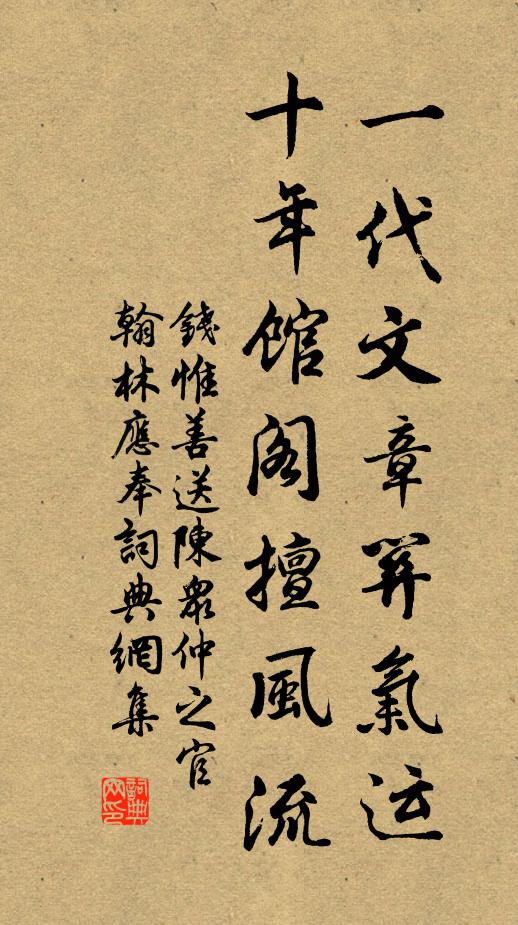 一代文章關氣运
十年館阁擅風流
錢惟善送陳眾仲之官
翰林應奉詞典網集
詞典网印